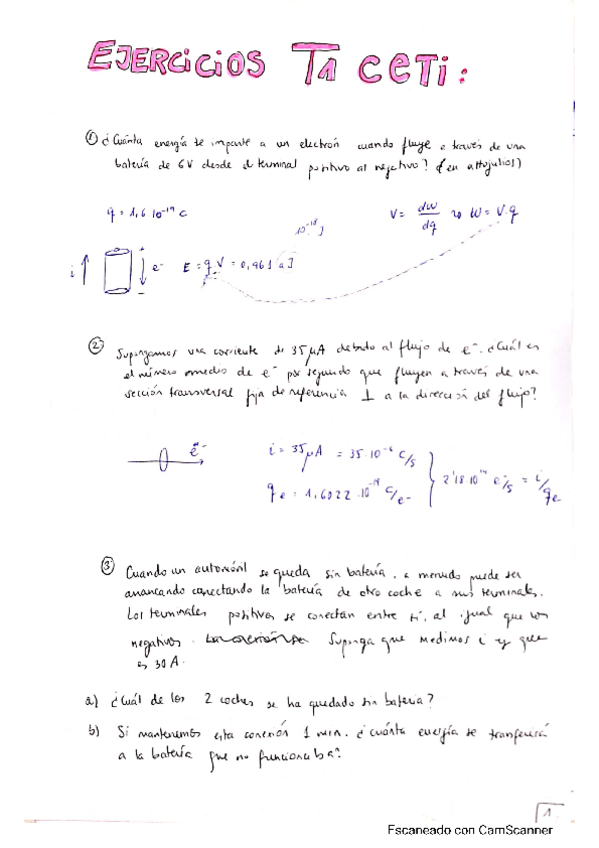 EJERCICIOS T1 CETI:
① ¿Cuánta energía se imparte a un electrón cuando fluye a través de una
batería de 6V desde el terminal positivo al negativo? (en attojulios)
q = 1,6 10⁻¹⁹ C
V = dw/dq → W = V·q
10⁻¹⁸ J
i e⁻ E = q·V = 0,961 aJ
② Supongamos una corriente de 35 μA debido al flujo de e⁻. ¿Cuál es
el número medio de e⁻ por segundo que fluyen a través de una
sección transversal fija de referencia ⊥ a la dirección del flujo?
e⁻ i = 35 μA = 35·10⁻⁶ C/s
qe = 1,6022·10⁻¹⁹ C/e⁻ } 2'18 10¹⁴ e⁻/s = i/qe
③ Cuando un automóvil se queda sin batería, a menudo puede ser
arrancado conectando la batería de otro coche a sus terminales.
Los terminales positivos se conectan entre sí, al igual que los
negativos. Suponga que medimos i y que
es 30 A.
a) ¿Cuál de los 2 coches se ha quedado sin batería?
b) Si mantenemos esta conexión 1 min. ¿cuánta energía se transferirá
a la batería que no funcionaba?
1
Escaneado con CamScanner